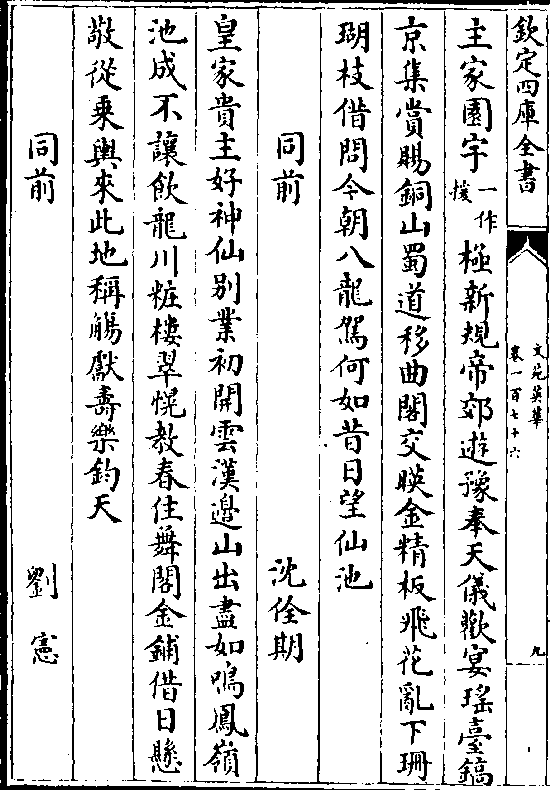 欽定四庫全書
文苑英華
卷一百七十六
九
主家園宇一作樓極新規帝郊遊豫奉天儀歡宴瑤臺鎬
京集賞賜銅山蜀道移曲閣交暎金精板飛花亂下珊
瑚枝借問今朝八龍駕何如昔日望仙池
同前 沈佺期
皇家貴主好神仙别業初開雲漢邉山出盡如鳴鳳嶺
池成不讓飲龍川粧樓翠幌教春住舞閣金鋪借日懸
敬從乗輿來此地稱觴獻壽樂鈞天
同前 劉憲